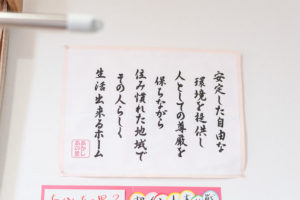 安定した自由な
環境を提供し
人としての尊厳を
保ちながら
住み慣れた地域で
その人らしく
生活出来るホーム